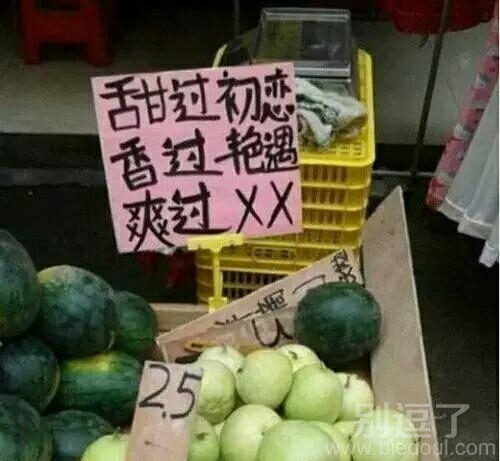 甜过初恋
香过艳遇
爽过XX
2.5
别逗了
biedoul.com